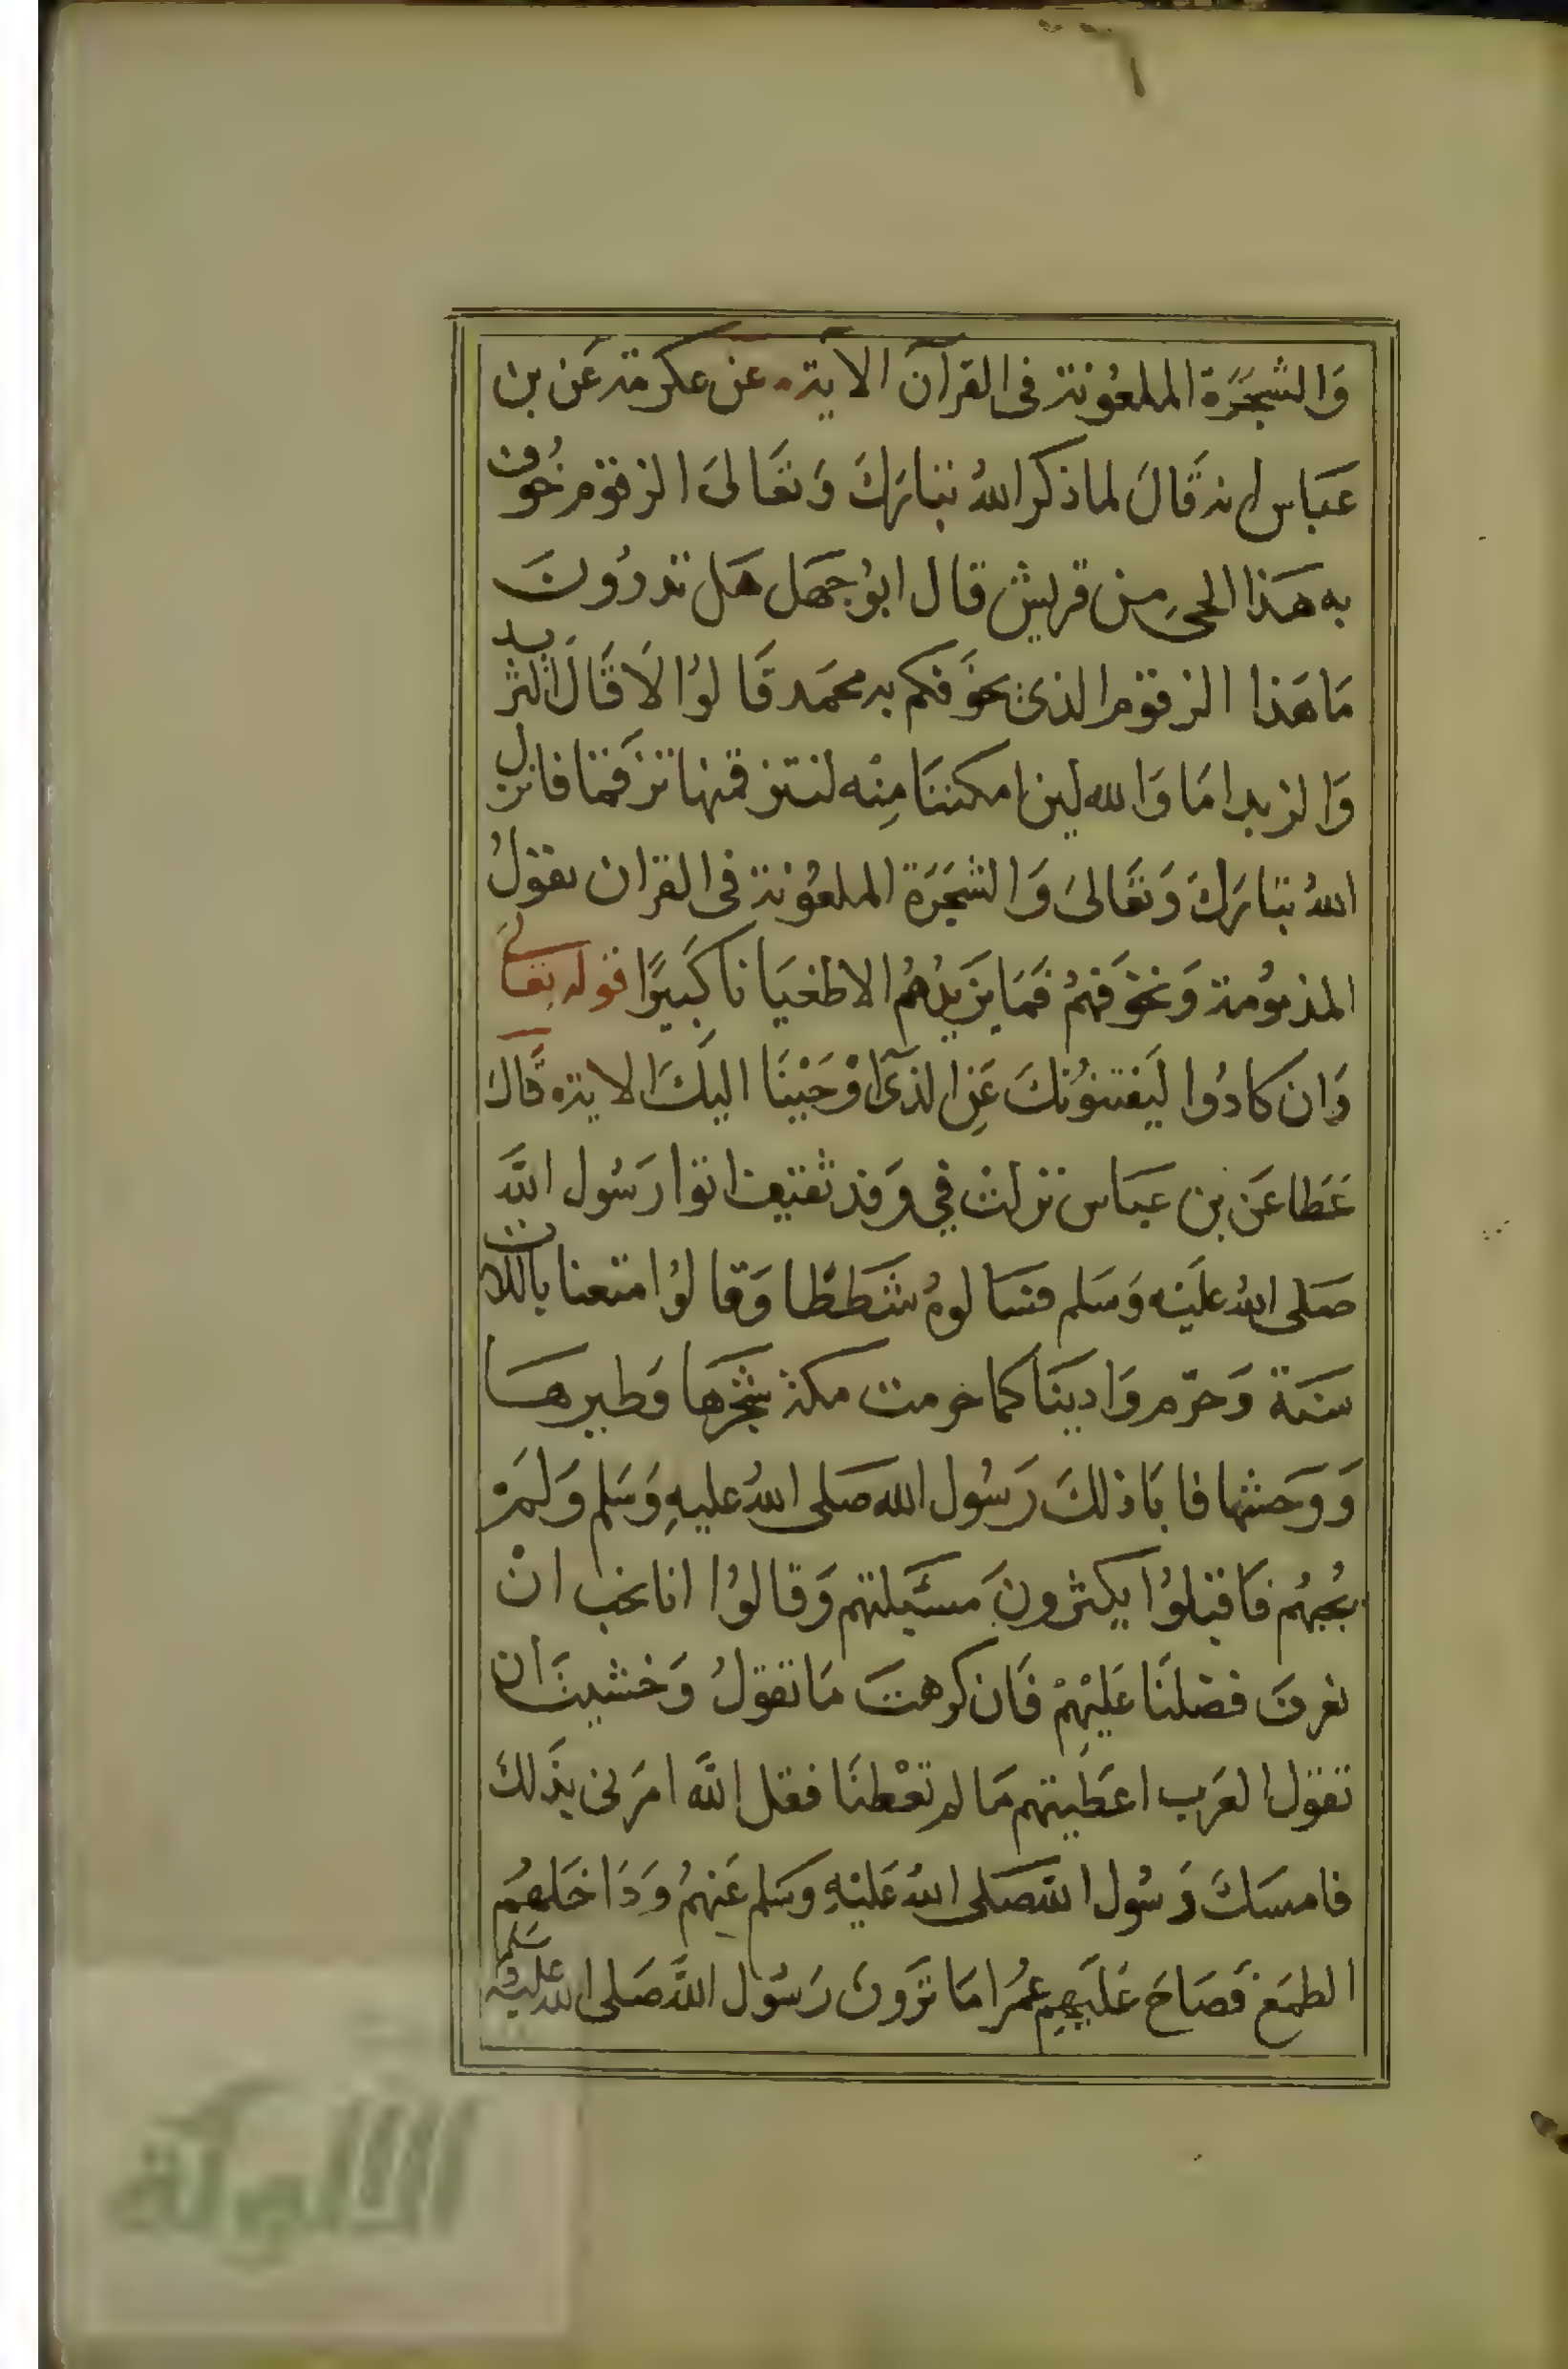 وَالشجَرَة الملعُونة في القرآن الآية عن عكرمة عَن بن
عبَاس انه قَالَ لما ذكر اللهُ تبَارَكَ وَتعَالىَ الزقوم خُوف
به هَذا الحي من قريش قال ابوُ جهَل هَل تدرُونَ
مَا هَذا الزقوم الذي يخوَفكم به محمَد قَالوُا لَا قَالَ الثريد
وَالزبد امَا وَالله لين امكننَا مِنْه لنتزقمنها تزقمَا فانزل
اللهُ تبَارَكَ وَتعَالىَ وَالشجَرَة الملعوُنة في القران يقوَلُ
المذموُمة وَنخوَفهمُ فمَا يزَيدُهُم الا طغيَانا كَبيرًا قوله تعَالى
وَان كادُوا ليَفتنوُنكَ عَنِ الذيٓ اوْحَيْنَا اليكَ الاية قَالَ
عَطَا عَن بن عبَاس نزلتْ في وَفد ثقيف اتوا رَسُول اللَّه
صَلى اللهُ عليْه وَسَلم فسَالوهُ شَططًا وَقالوُا متعنا باللات
سَنَة وَحرّم وَادينَا كما حرمت مكة شجَرهَا وَطيرهَا
وَوَحشها فابَا ذلكَ رَسُول الله صَلى اللهُ عليهِ وَسَلم وَلمْ
يُجبهُم فَاقبلوُا يكثرونَ مسَيلتهم وَقالوُا انا نحب انْ
نعرفَ فضلنَا عَليْهِمْ فَان كرهتَ مَا نقوَلُ وَخشيتَ ان
تقول العَرب اعطَيتهم مَا لم تعْطنَا فقل اللَّه امرَني بذَلكَ
فامسَكَ رَسُول الله صَلى اللهُ عَليْهِ وسَلم عَنهمُ وَدَاخَلهمُ
الطمَع فَصَاحَ عَليَهِم عمُر امَا ترَونَ رَسوُل اللَّه صَلى الله عليه وسَلم
الألوكة